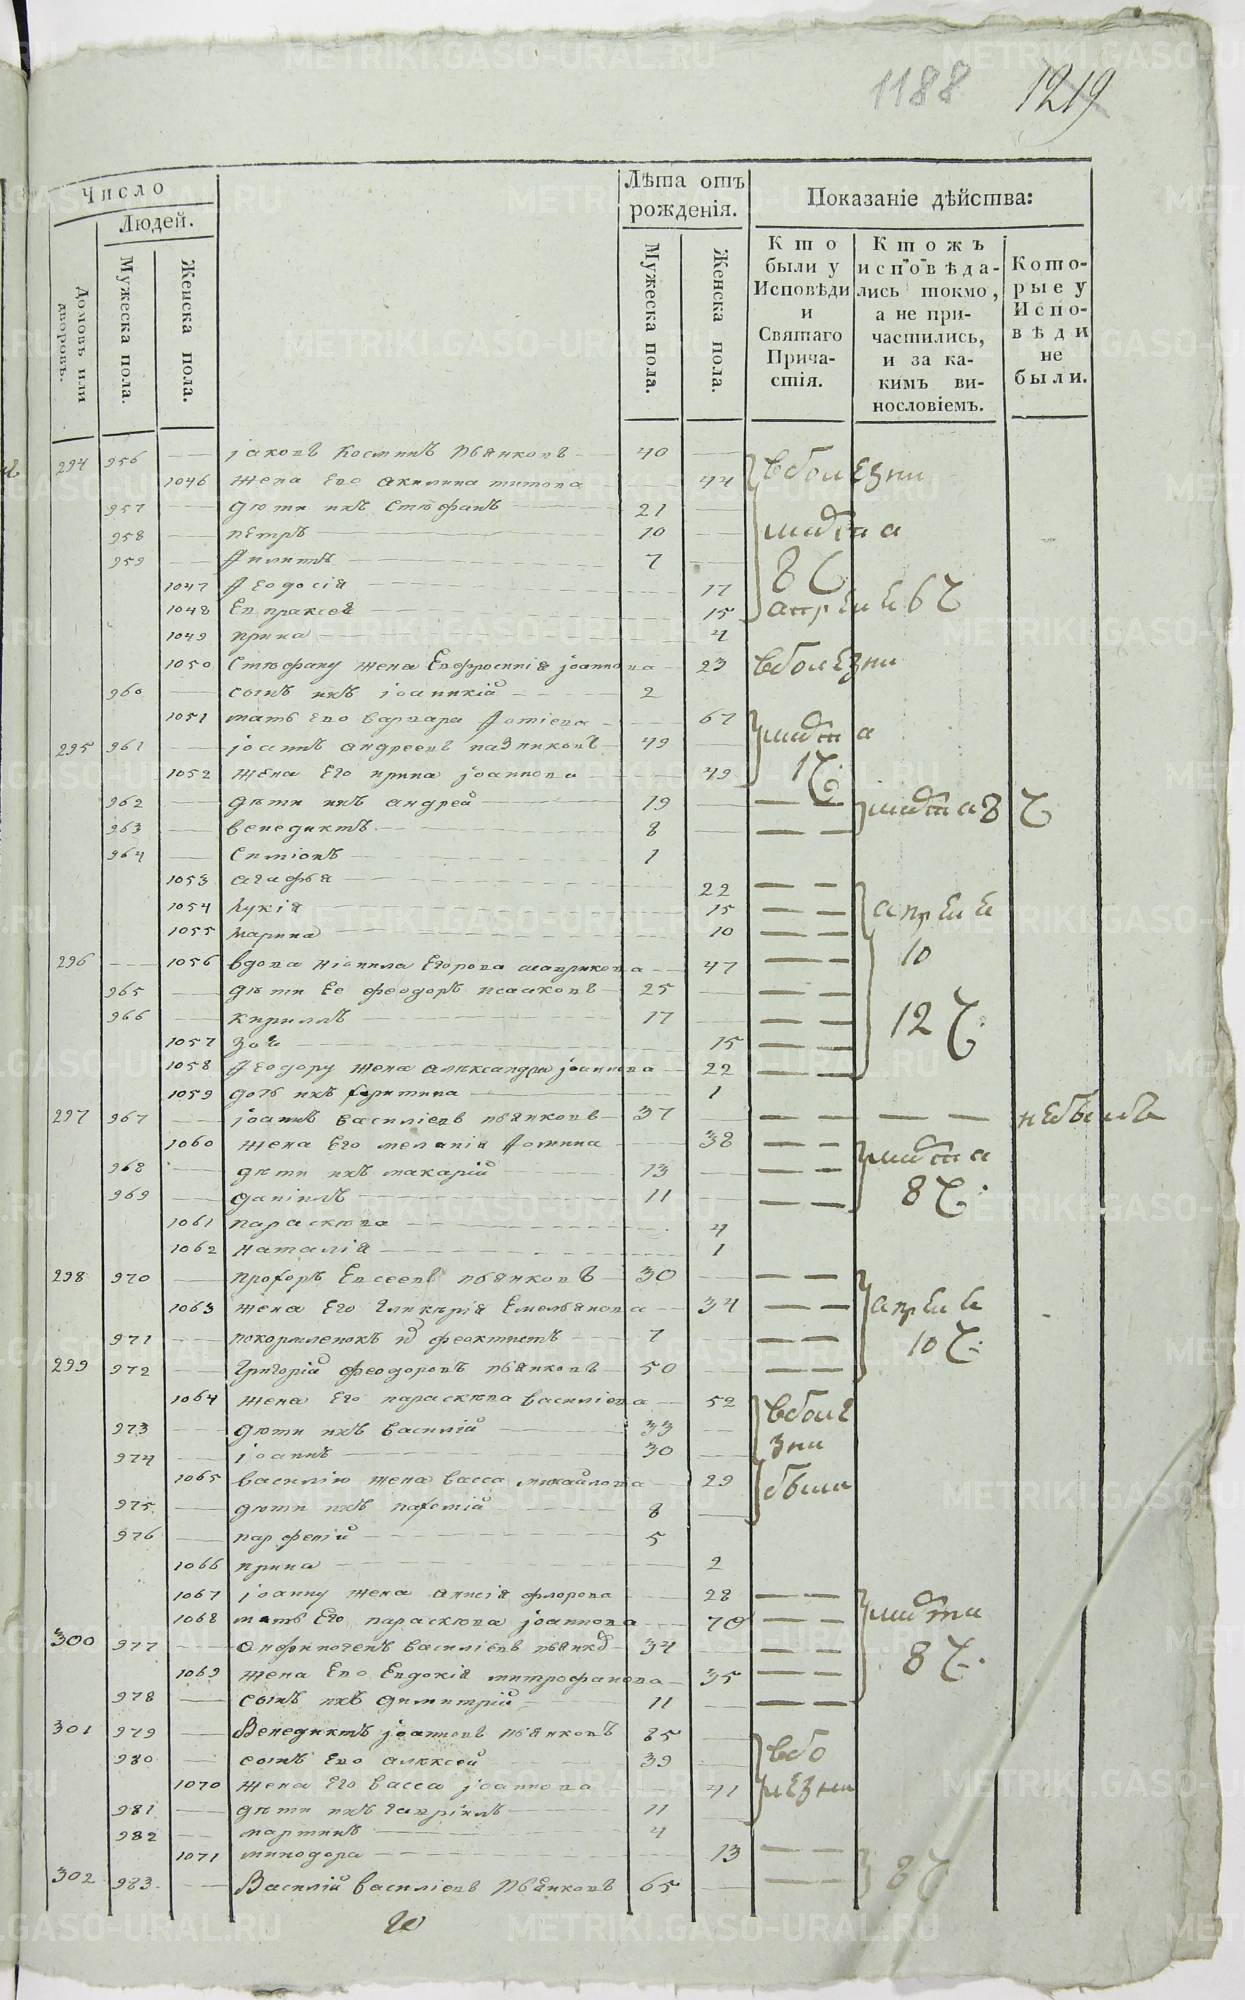 1188 1219
Число
Людей.
Лѣта отъ рожденія.
Показаніе дѣйства:
Домовъ или дворовъ.
Мужеска пола.
Женска пола.
Мужеска пола.
Женска пола.
Кто были у Исповѣди и Святаго Причастія.
Ктожъ исповѣдались токмо, а не причастились, и за какимъ винословіемъ.
Которые у Исповѣди не были.
294 956 — іаковъ Косминъ Пьянковъ — 40 —
1046 жена его акилина титова — 44 в болезни
957 — дѣти ихъ Стефанъ — 21 —
958 — петръ — 10 — марта
959 — Филипъ — 7 — 8 Ч
1047 Феодосія — 17
1048 Евпраксея — 15 апреля 6 Ч
1049 ирина — 4
1050 Стефану жена Евфросинія іоаннова — 23 в болезни
960 — сынъ ихъ іоанникій — 2
1051 мать его варвара Фотіева — 67
295 961 — іоаннъ андреевъ — 49 — марта
1052 жена Его ирина іоаннова — 49 17
962 — дѣти ихъ андрей — 19 — — — марта 8 Ч
963 — венедиктъ — 8 — —
964 — Симіонъ — 1
1053 агафья — 22 — —
1054 лукія — 15 — — апреля
1055 марина — 10 — —
296 — 1056 вдова Егорова — 47 — — 10
965 — дѣти Ее феодоръ исааковъ — 25 — — —
966 — кирилъ — 17 — — — 12 Ч
1057 зоя — 15 — —
1058 Феодору жена александра іоаннова — 22 — —
1059 дочь ихъ — 1
297 967 — іоаннъ василіевъ пьянковъ — 37 — — — — — небылъ
1060 жена Его меланія Фомина — 38 — — марта
968 — дѣти ихъ макарій — 13 — —
969 — даніилъ — 11 — — 8 Ч
1061 параскева — 4
1062 наталія — 1
298 970 — прохоръ Евсеевъ пьянковъ — 30 — — —
1063 жена Его гликерія Емельянова — 34 — — апреля
971 — покормленокъ феоктистъ — 7 — — 10 Ч
299 972 — Григорій феодоровъ пьянковъ — 50 — — —
1064 жена Его параскева василіева — 52 в боле
973 — дѣти ихъ василій — 33 —
974 — іоаннъ — 30 — зни
1065 василію жена васса михайлова — 29
975 — дѣти ихъ пафотій — 8 — были
976 — парфеній — 5
1066 ирина — 2
1067 іоанну жена анисія флорова — 28 — —
1068 мать Его параскева іоаннова — 70 — — марта
300 977 — василіевъ — 34 — —
1069 жена Его Евдокія митрофанова — 35 — — 8 Ч
978 — сынъ ихъ димитрій — 11 — —
301 979 — Венедиктъ іоанновъ Пьянковъ 85 —
980 — сынъ Его алексей 39 — в бо
1070 жена Его васса іоаннова — 41 лезни
981 — дѣти ихъ гавріилъ — 11
982 — мартинъ — 4
1071 минодора — 13 — —
302 983 — Василій василіевъ Пьянковъ 65 — — — 8 Ч